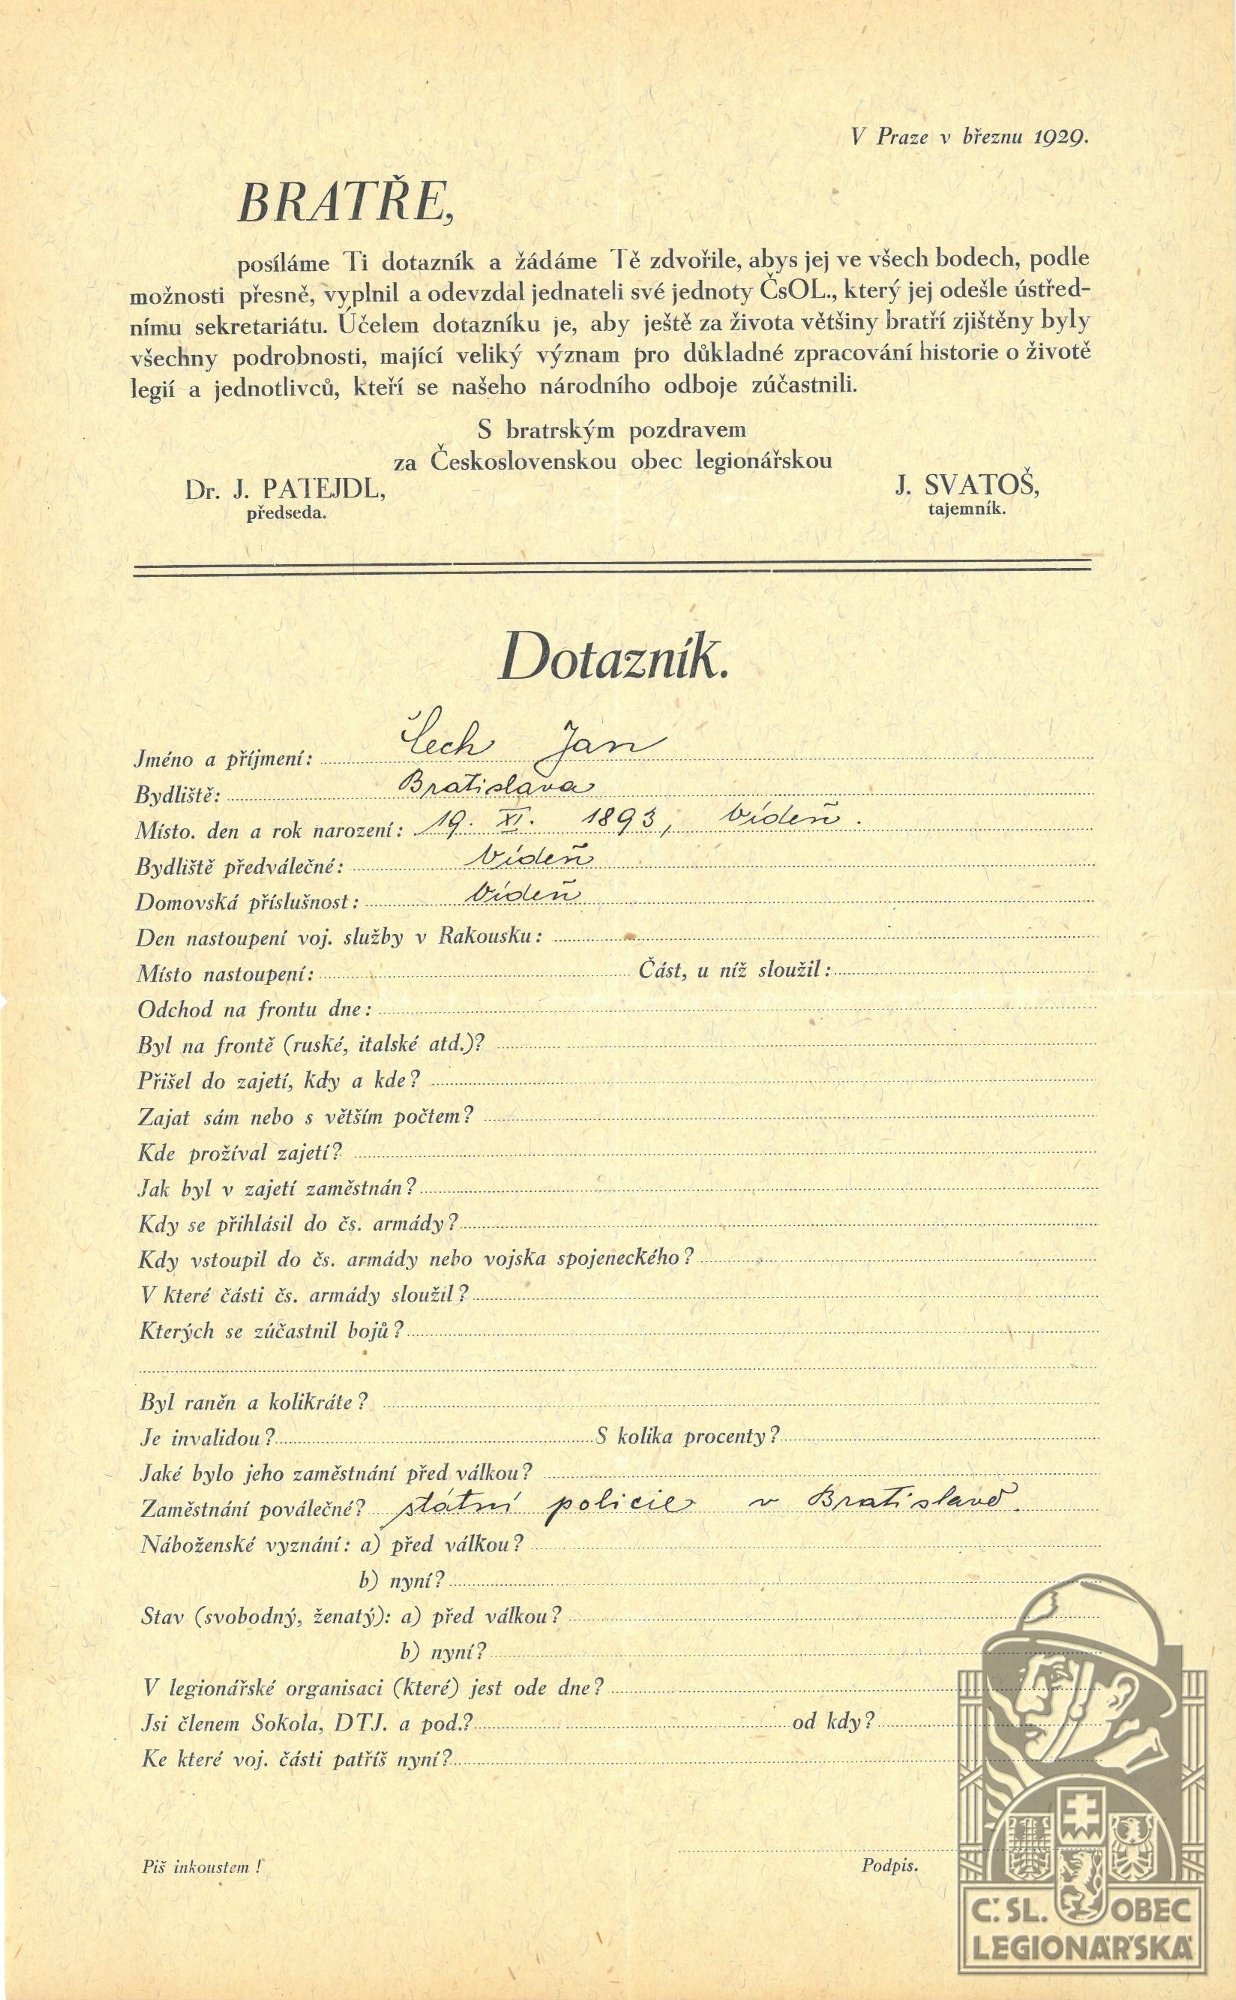 V Praze v březnu 1929.
BRATŘE,
posíláme Ti dotazník a žádáme Tě zdvořile, abys jej ve všech bodech, podle
možnosti přesně, vyplnil a odevzdal jednateli své jednoty ČsOL., který jej odešle ústřed-
nímu sekretariátu. Účelem dotazníku je, aby ještě za života většiny bratří zjištěny byly
všechny podrobnosti, mající veliký význam pro důkladné zpracování historie o životě
legií a jednotlivců, kteří se našeho národního odboje zúčastnili.
S bratrským pozdravem
za Československou obec legionářskou
Dr. J. PATEJDL,
předseda.
J. SVATOŠ,
tajemník.
Dotazník.
Jméno a příjmení: Čech Jan
Bydliště: Bratislava
Místo. den a rok narození: 19. XI. 1893, Vídeň.
Bydliště předválečné: Vídeň
Domovská příslušnost: Vídeň
Den nastoupení voj. služby v Rakousku:
Místo nastoupení: Část, u níž sloužil:
Odchod na frontu dne:
Byl na frontě (ruské, italské atd.)?
Přišel do zajetí, kdy a kde?
Zajat sám nebo s větším počtem?
Kde prožíval zajetí?
Jak byl v zajetí zaměstnán?
Kdy se přihlásil do čs. armády?
Kdy vstoupil do čs. armády nebo vojska spojeneckého?
V které části čs. armády sloužil?
Kterých se zúčastnil bojů?
Byl raněn a kolikráte?
Je invalidou? S kolika procenty?
Jaké bylo jeho zaměstnání před válkou?
Zaměstnání poválečné? státní policie v Bratislavě.
Náboženské vyznání: a) před válkou?
b) nyní?
Stav (svobodný, ženatý): a) před válkou?
b) nyní?
V legionářské organisaci (které) jest ode dne?
Jsi členem Sokola, DTJ. a pod.? od kdy?
Ke které voj. části patříš nyní?
Piš inkoustem!
Podpis.
Č. SL. OBEC
LEGIONÁŘSKÁ